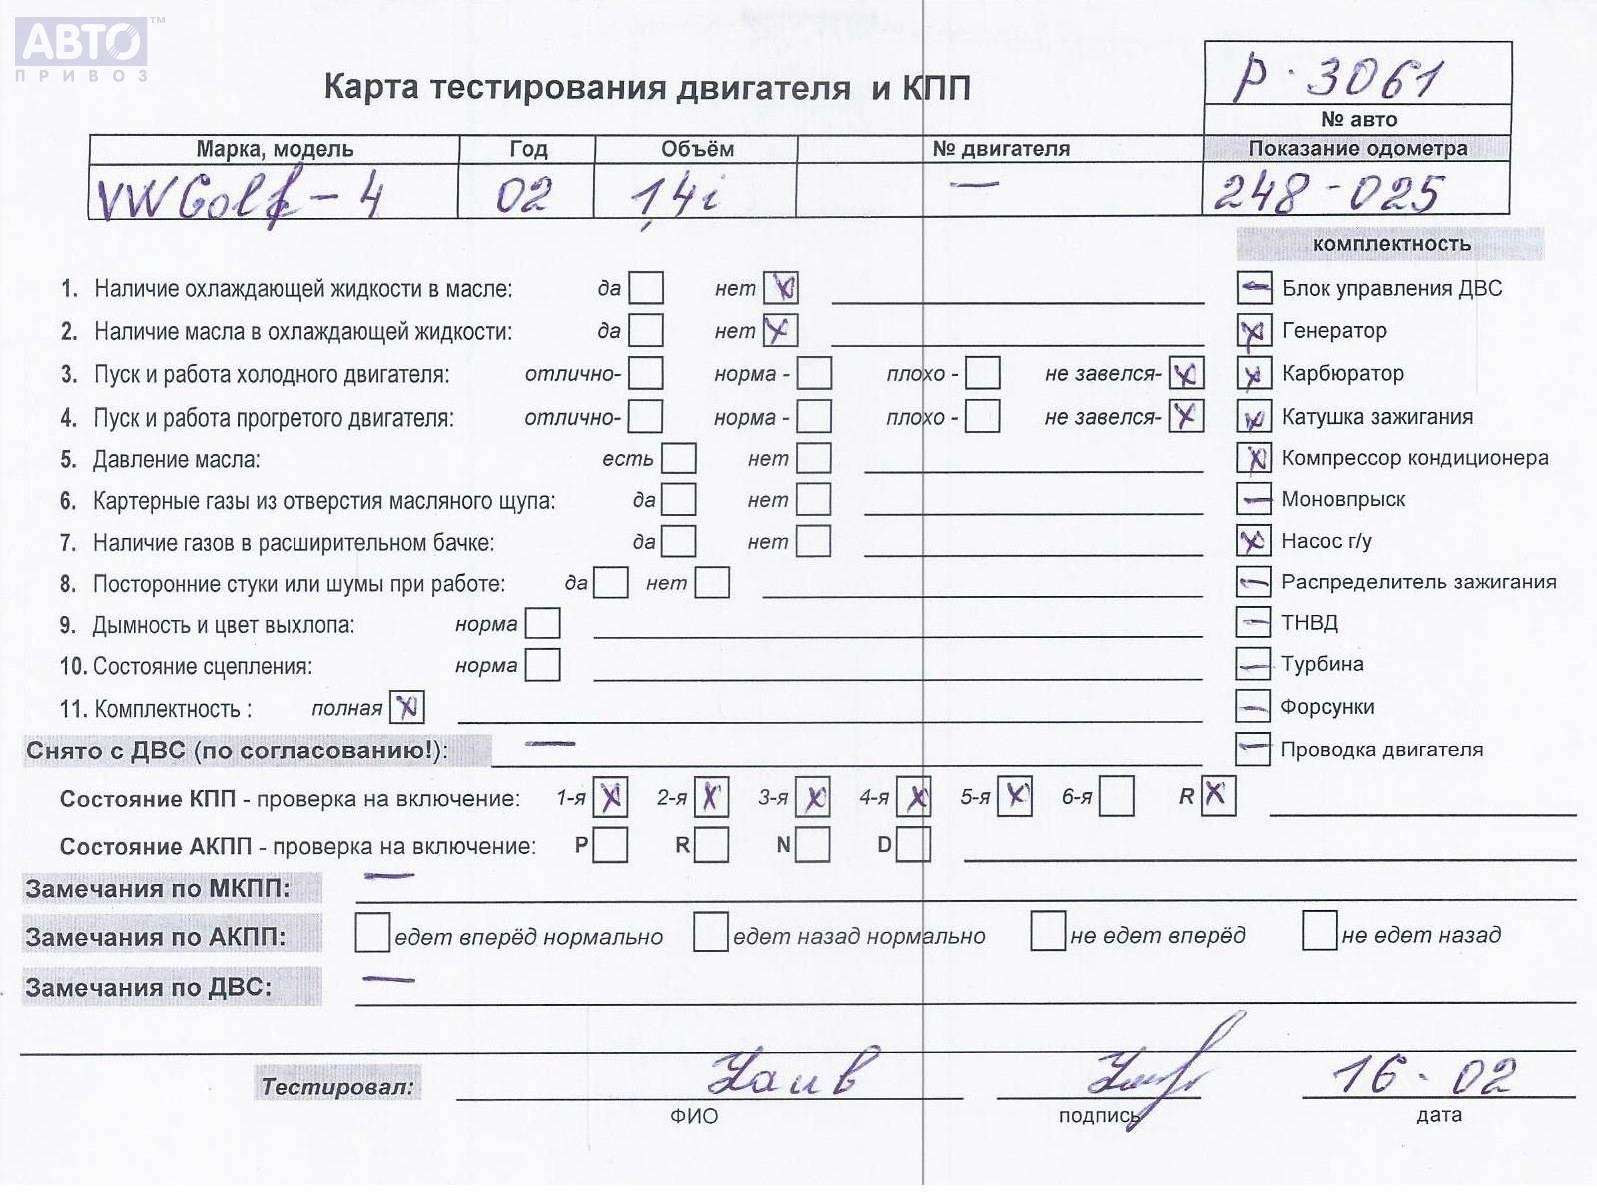 АВТО™
ПРИВОЗ
Карта тестирования двигателя и КПП
р. 3061
№ авто
Марка, модель Год Объём № двигателя Показание одометра
VW Golf - 4 02 1,4i — 248-025
комплектность
1. Наличие охлаждающей жидкости в масле: да нет X — Блок управления ДВС
2. Наличие масла в охлаждающей жидкости: да нет X X Генератор
3. Пуск и работа холодного двигателя: отлично- норма - плохо - не завелся- X X Карбюратор
4. Пуск и работа прогретого двигателя: отлично- норма - плохо - не завелся- X X Катушка зажигания
5. Давление масла: есть нет X Компрессор кондиционера
6. Картерные газы из отверстия масляного щупа: да нет — Моновпрыск
7. Наличие газов в расширительном бачке: да нет X Насос г/у
8. Посторонние стуки или шумы при работе: да нет — Распределитель зажигания
9. Дымность и цвет выхлопа: норма — ТНВД
10. Состояние сцепления: норма — Турбина
11. Комплектность : полная X — Форсунки
Снято с ДВС (по согласованию!): — — Проводка двигателя
Состояние КПП - проверка на включение: 1-я X 2-я X 3-я X 4-я X 5-я X 6-я R X
Состояние АКПП - проверка на включение: P R N D
Замечания по МКПП: —
Замечания по АКПП: едет вперёд нормально едет назад нормально не едет вперёд не едет назад
Замечания по ДВС: —
Тестировал: 16-02
ФИО подпись дата